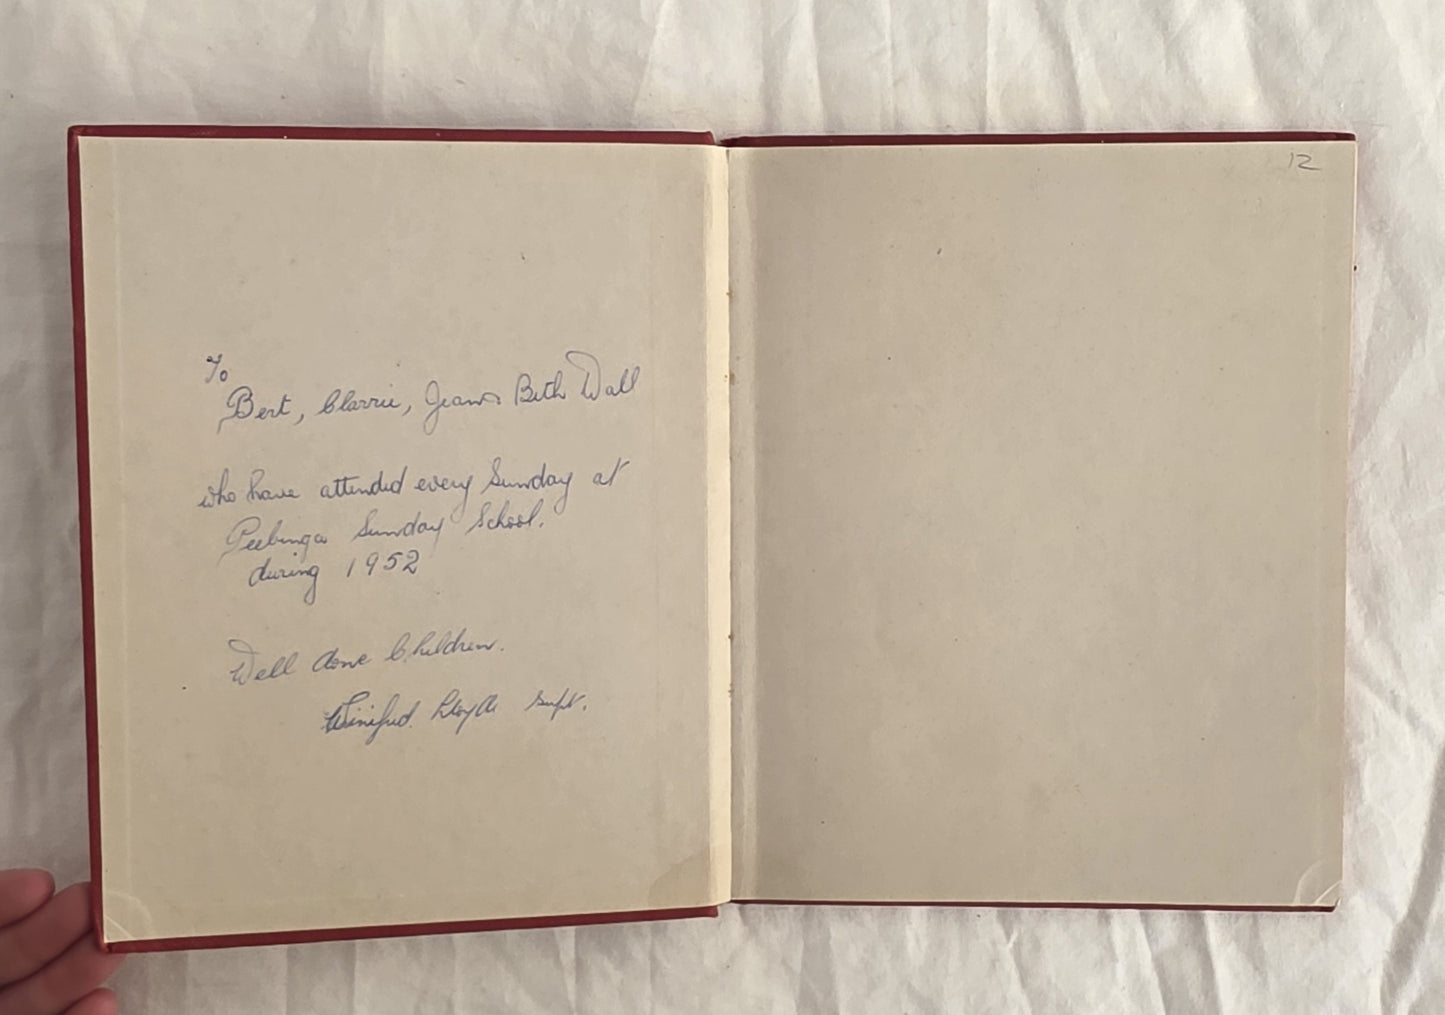 To
Bert, Clarrie, Jean & Beth Wall
who have attended every Sunday at
Peebinga Sunday School.
during 1952
Well done Children.
Winifred Supt.
12